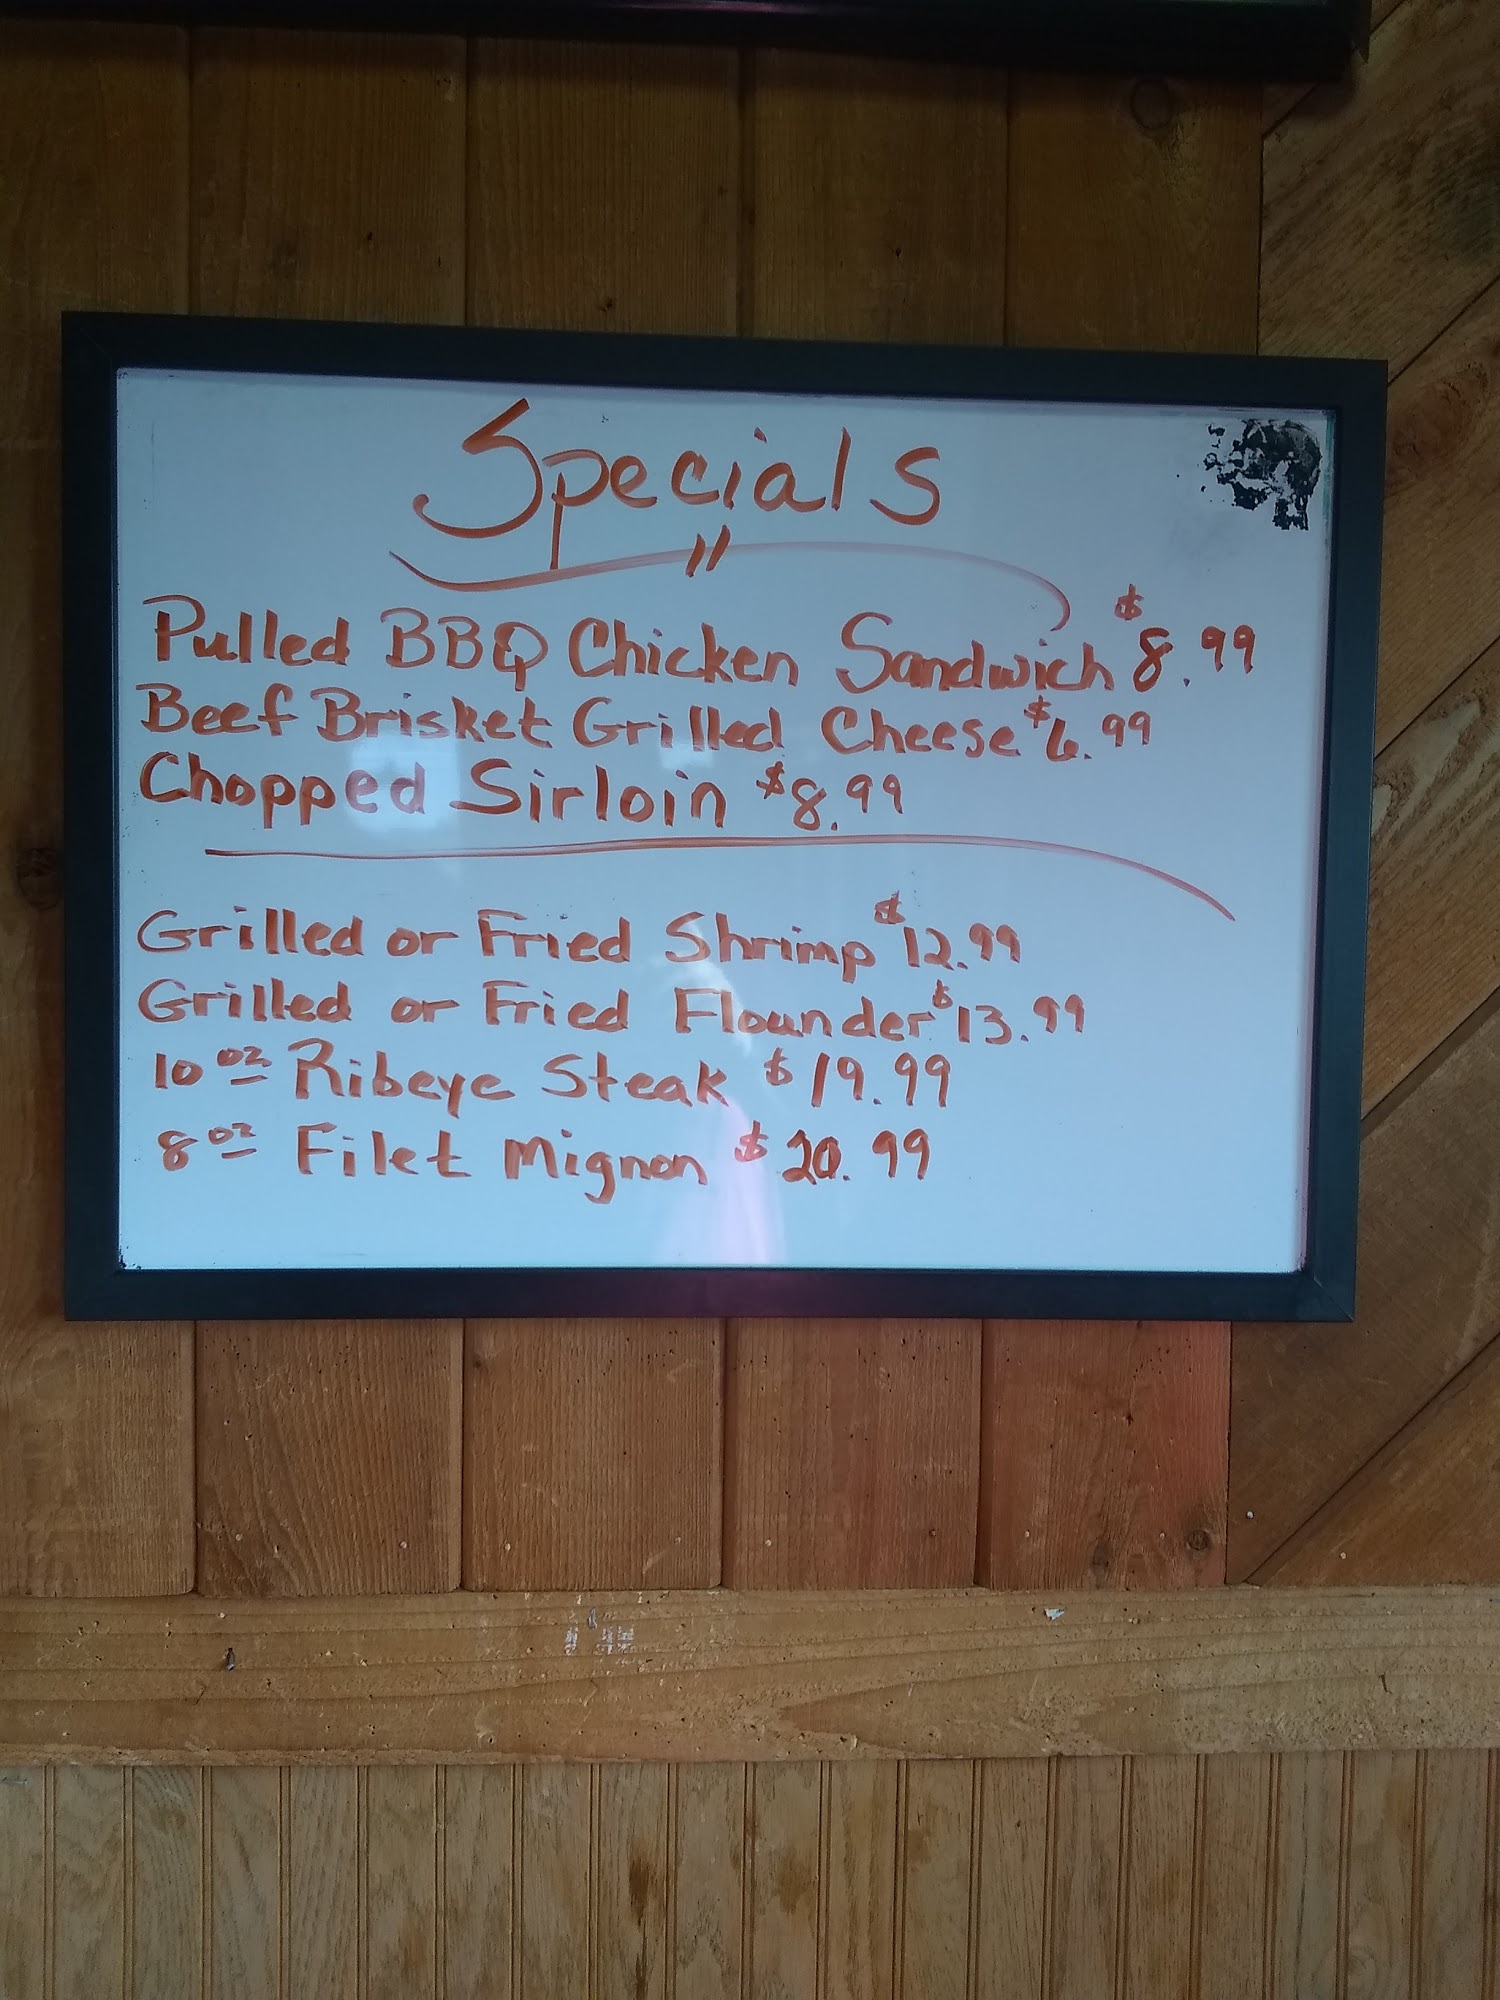 Specials
Pulled BBQ Chicken Sandwich $8.99
Beef Brisket Grilled Cheese $6.99
Chopped Sirloin $8.99
Grilled or Fried Shrimp $12.99
Grilled or Fried Flounder $13.99
10 oz Ribeye Steak $19.99
8 oz Filet Mignon $20.99